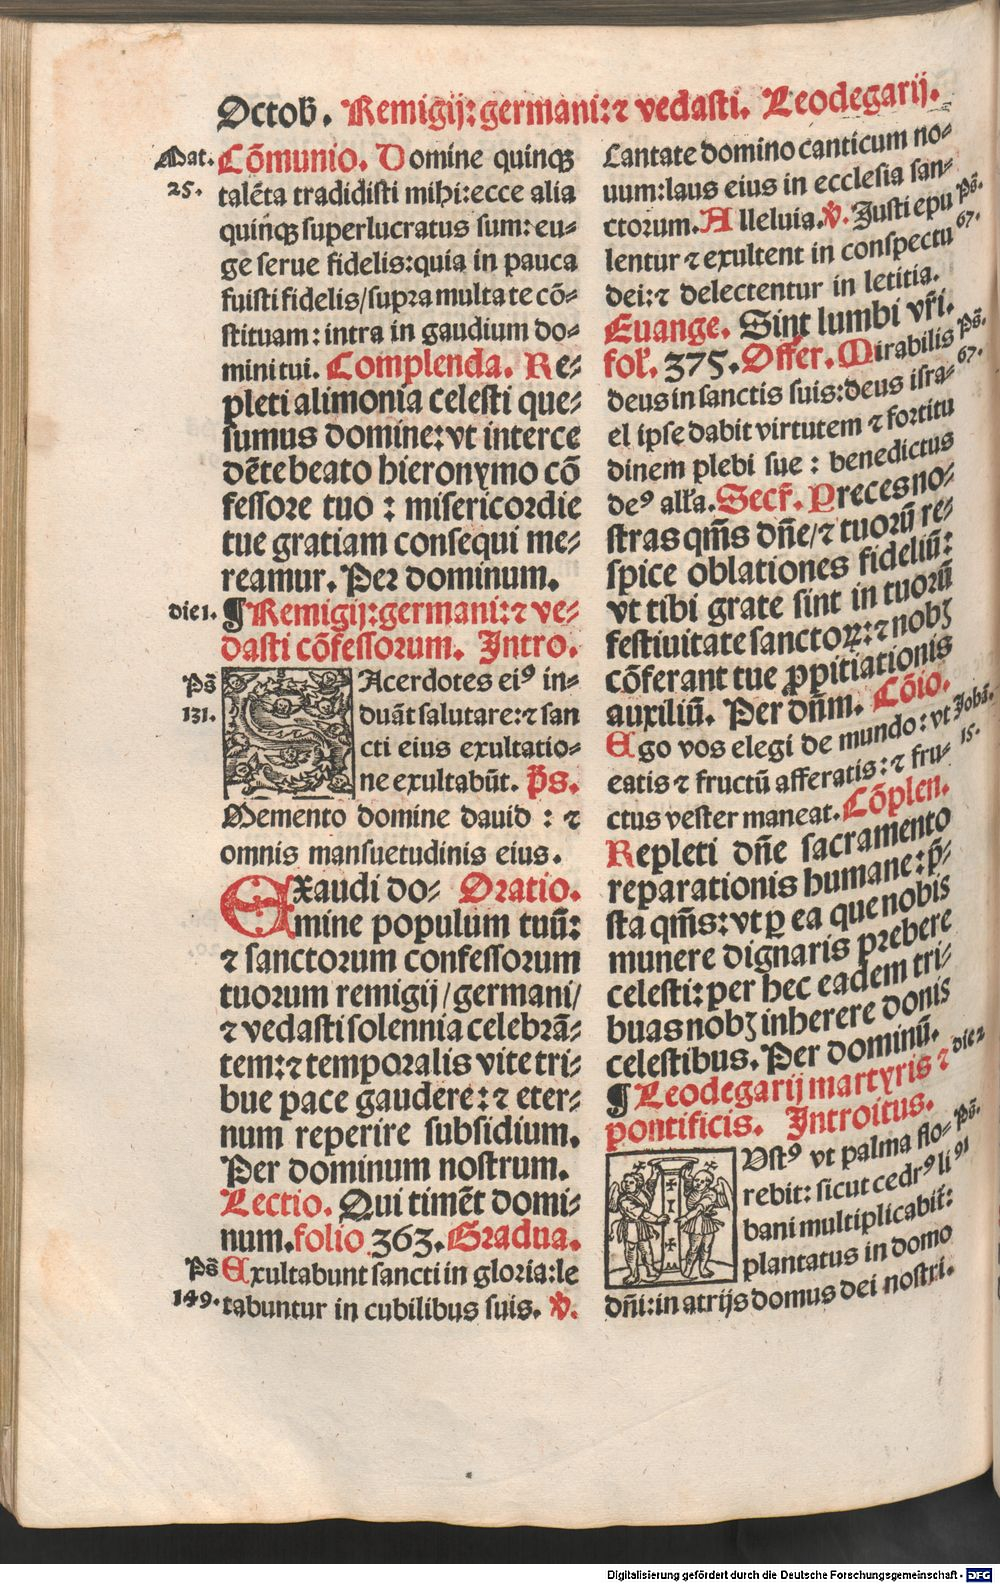 Octob̄. Remigij: germani: ⁊ vedasti. Leodegarij.
Mat. Cōmunio. Domine quinqꝫ
25. talēta tradidisti mihi: ecce alia
quinqꝫ superlucratus sum: eu⸗
ge serue fidelis: quia in pauca
fuisti fidelis/ supra multa te cō⸗
stituam: intra in gaudium do⸗
mini tui. Complenda. Re⸗
pleti alimonia celesti que⸗
sumus domine: vt interce
dēte beato hieronymo cō
fessore tuo : misericordie
tue gratiam consequi me⸗
reamur. Per dominum.
die 1. ¶ Remigij: germani: ⁊ ve⸗
dasti cōfessorum. Intro.
Ps̄ SAcerdotes eiꝰ in⸗
131. duāt salutare: ⁊ san
cti eius exultatio⸗
ne exultabūt. p̄s.
Memento domine dauid : ⁊
omnis mansuetudinis eius.
Exaudi do⸗ Oratio.
mine populum tuū:
⁊ sanctorum confessorum
tuorum remigij/ germani/
⁊ vedasti solennia celebrā⸗
tem: ⁊ temporalis vite tri⸗
bue pace gaudere: ⁊ eter⸗
num reperire subsidium.
Per dominum nostrum.
Lectio. Qui timēt domi⸗
num. folio 363. Gradua.
Ps̄ Exultabunt sancti in gloria: le
149. tabuntur in cubilibus suis. ℣.
Cantate domino canticum no⸗
uum: laus eius in ecclesia san⸗
ctorum. Alleluia. ℣. Iusti epu Ps̄.
lentur ⁊ exultent in conspectu 67.
dei: ⁊ delectentur in letitia.
Euange. Sint lumbi vr̄i.
fol. 375. Offer. Mirabilis Ps̄.
deus in sanctis suis: deus isra⸗ 67.
el ipse dabit virtutem ⁊ fortitu
dinem plebi sue : benedictus
deꝰ all'a. Secr̄. Preces no⸗
stras qm̄s dn̄e/ ⁊ tuorū re⸗
spice oblationes fideliū:
vt tibi grate sint in tuorū
festiuitate sanctoꝝ: ⁊ nobꝫ
cōferant tue ꝓpitiationis
auxiliū. Per dn̄m. Cōio.
Ego vos elegi de mundo: vt Johā.
eatis ⁊ fructū afferatis: ⁊ fru⸗ 15.
ctus vester maneat. Cōplen.
Repleti dn̄e sacramento
reparationis humane: p̄⸗
sta qm̄s: vt ꝑ ea que nobis
munere dignaris prebere
celesti: per hec eadem tri⸗
buas nobꝫ inherere donis
celestibus. Per dominū.
¶ Leodegarij martyris ⁊ die 2
pontificis. Introitus.
Ustꝰ vt palma flo⸗ Ps̄.
rebit: sicut cedrꝰ li 91
bani multiplicabit̄:
plantatus in domo
dn̄i: in atrijs domus dei nostri.
Digitalisierung gefördert durch die Deutsche Forschungsgemeinschaft - DFG